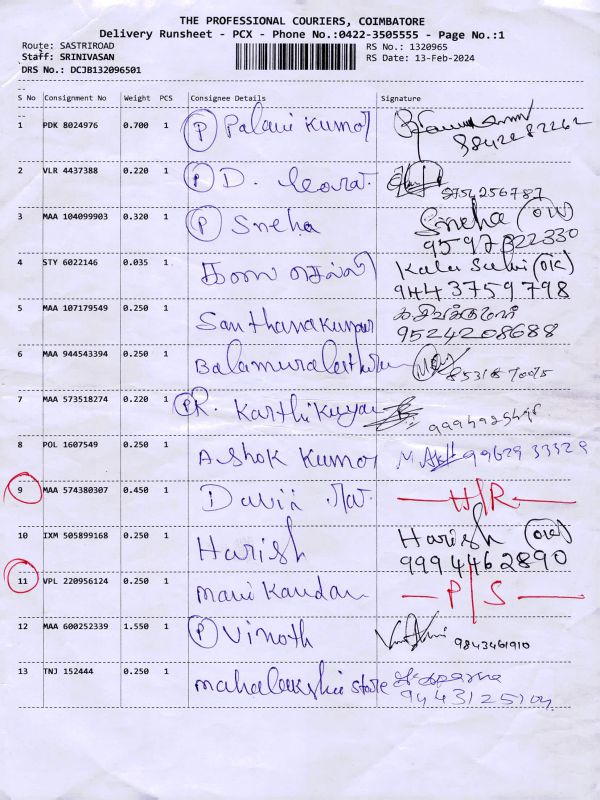 THE PROFESSIONAL COURIERS, COIMBATORE
Delivery Runsheet - PCX - Phone No.:0422-3505555 - Page No.:1
Route: SASTRIROAD
RS No.: 1320965
Staff: SRINIVASAN
RS Date: 13-Feb-2024
DRS No.: DCJB132096501
S No Consignment No Weight PCS Consignee Details Signature
1 PDK 8024976 0.700 1 (P) Palani Kumar 9842282262
2 VLR 4437388 0.220 1 (P) D. 9754256787
3 MAA 104099903 0.320 1 (P) Sneha Sneha (OW)
9597322330
4 STY 6022146 0.035 1 கலை செல்வி Kalai Selvi (OK)
9443759798
5 MAA 107179549 0.250 1 Santhanakumar க.சிவக்குமார்
9524208688
6 MAA 944543394 0.250 1
7 MAA 573518274 0.220 1 (P) R. Karthikeyan
8 POL 1607549 0.250 1 Ashok Kumar 9962933329
9 MAA 574380307 0.450 1 David H/R
10 IXM 505899168 0.250 1 Harish Harish
9994462890
11 VPL 220956124 0.250 1 Manikandan P/S
12 MAA 600252339 1.550 1 (P) Vinoth 9843461910
13 TNJ 152444 0.250 1 Mahalakshmi Store